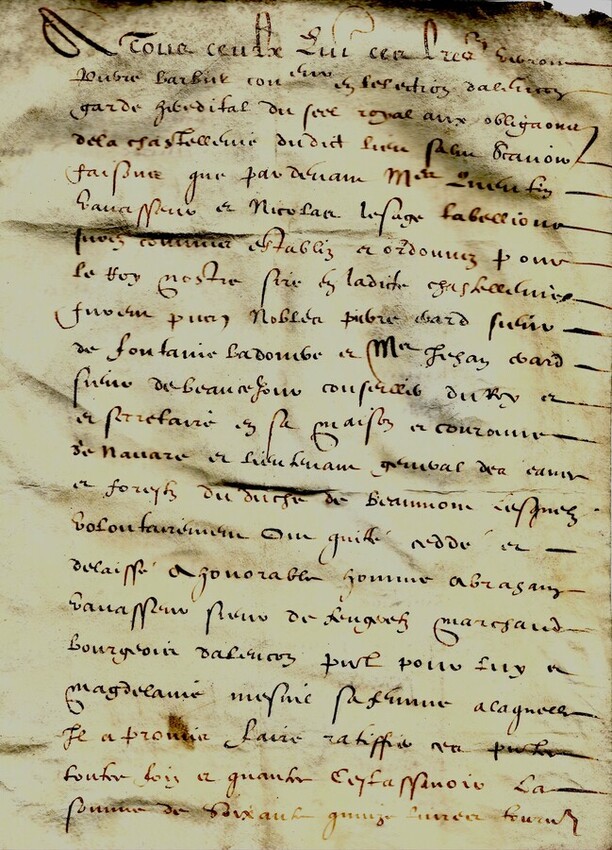 A Tous ceulx qui ces lres verront
Pierre barbier con en lelection dalencon
garde heredital du seel royal aux obligaons
dela chastellenie dudict lieu salut scavoir
faisons que par devant Mes Quentin
vavasseur et Nicolas lesage tabellions
jurez commis establiz et ordonnez pour
le Roy nostre sire en ladicte chastellenie
furent pns Nobles pierre Evard sieur
de fontaine et Me Jehan Evard
sieur de beausejour conseiller du Roy et
et secretaire en sa maison et couronne
de Navarre et lieutenant general des eaues
et forestz du duche de Beaumont lesquelz
volontairement Ont quité ceddé et
delaissé A honorable homme Abraham
vavasseur sieur de marchand
bourgeois dalencon pnt pour luy et
magdelaine mesnil sa femme alaquelle
Il a promis faire ratiffier ces pntes
toutes fois et quantes Cestassavoir La
somme de Soixante quinze livres tournz